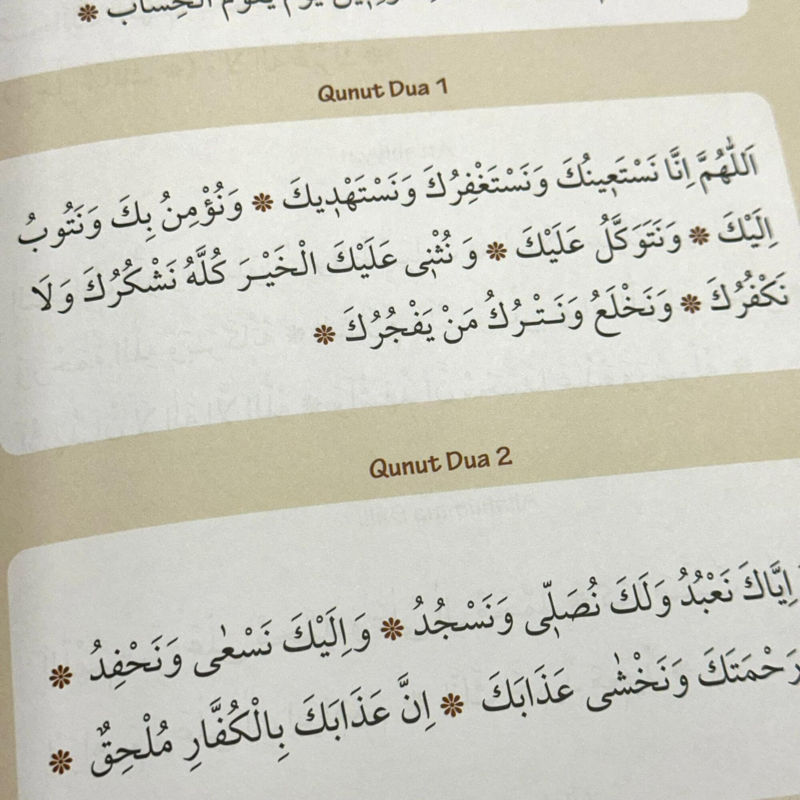 يَوْمَ يَقُومُ الْحِسَابُ ❋
Qunut Dua 1
اَللّٰهُمَّ اِنَّا نَسْتَعٖينُكَ وَنَسْتَغْفِرُكَ وَنَسْتَهْدٖيكَ ❋ وَنُؤْمِنُ بِكَ وَنَتُوبُ
اِلَيْكَ ❋ وَنَتَوَكَّلُ عَلَيْكَ ❋ وَ نُثْنٖى عَلَيْكَ الْخَيْرَ كُلَّهُ نَشْكُرُكَ وَ لَا
نَكْفُرُكَ ❋ وَنَخْلَعُ وَنَتْرُكُ مَنْ يَفْجُرُكَ ❋
Qunut Dua 2
اِيَّاكَ نَعْبُدُ وَلَكَ نُصَلّٖى وَنَسْجُدُ ❋ وَاِلَيْكَ نَسْعٰى وَنَحْفِدُ ❋
رَحْمَتَكَ وَنَخْشٰى عَذَابَكَ ❋ اِنَّ عَذَابَكَ بِالْكُفَّارِ مُلْحِقٌ ❋